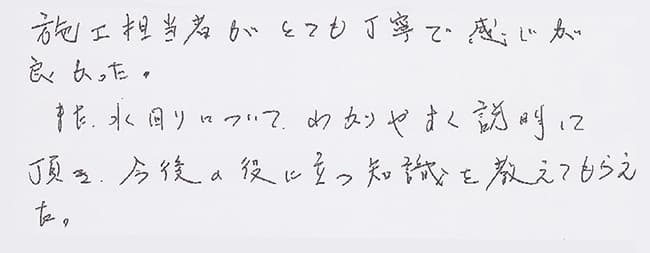 施工担当者がとても丁寧で感じが
良かった。
また、水回りについて、わかりやすく説明して
頂き、今後の役に立つ知識を教えてもらえ
た。